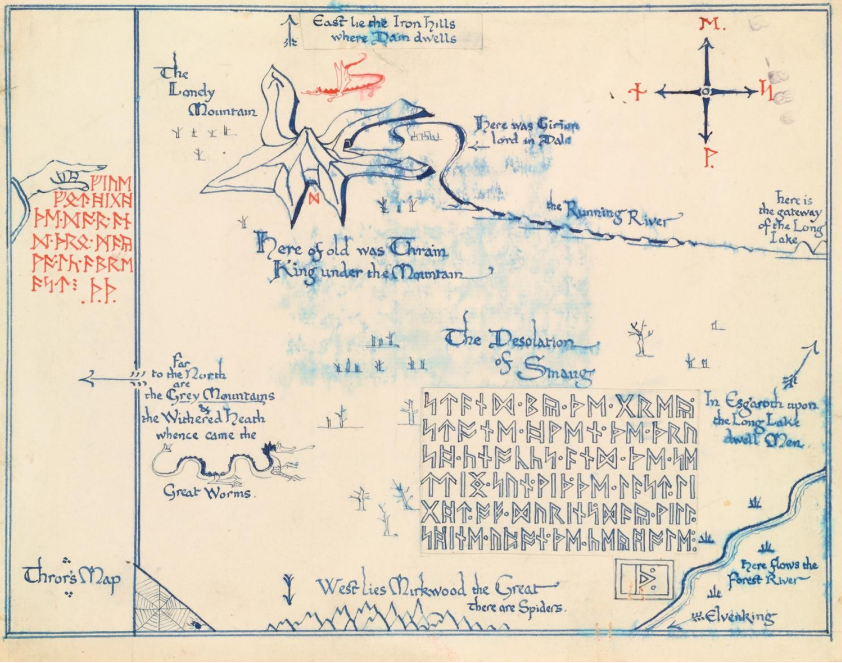 East lie the Iron Hills
where Dain dwells
The
Lonely
Mountain
Here was Girion
lord in Dale
ᛖ᛫
ᚾ
ᛋ
ᚹ᛫
ᚾ
the Running River
here is
the gateway
of the Long
Lake
ᚠᛁᚢᛖ
ᚠᚩᛏ᛫ᚻᛁᚷᚻ
ᚦᛖ᛫ᛞᚩᚱ᛫ᚪᚾ
ᛞ᛫ᚦᚱᛟ᛫ᛗᚪᚣ
ᚹᚪᛚᚳ᛫ᚪᛒᚱᛖ
ᚪᛋᛏ᛬ ᚦ᛫ᚦ᛫
Here of old was Thrain
King under the Mountain
The Desolation
of Smaug
Far
to the North
are
the Grey Mountains
&
the Withered Heath
whence came the
Great Worms.
In Esgaroth upon
the Long Lake
dwell Men
ᛋᛏᚪᚾᛞ᛫ᛒᚣ᛫ᚦᛖ᛫ᚷᚱᛖᚣ᛫
ᛋᛏᚩᚾᛖ᛫ᚻᚹᛖᚾ᛫ᚦᛖ᛫ᚦᚱᚢ
ᛋᚻ᛫ᚳᚾᚩᚳᚳᛋ᛫ᚪᚾᛞ᛫ᚦᛖ᛫ᛋᛖ
ᛏᛏᛁᛝ᛫ᛋᚢᚾ᛫ᚹᛁᚦ᛫ᚦᛖ᛫ᛚᚪᛋᛏ᛫ᛚᛁ
ᚷᚻᛏ᛫ᚩᚠ᛫ᛞᚢᚱᛁᚾᛋ᛫ᛞᚪᚣ᛫ᚹᛁᛚᛚ᛫
ᛋᚻᛁᚾᛖ᛫ᚢᛈᚩᚾ᛫ᚦᛖ᛫ᚳᛖᚣᚻᚩᛚᛖ᛬
᛫ᚦ᛬
Here flows the
Forest River
Elvenking
Thror's Map
West lies Mirkwood the Great
There are Spiders.